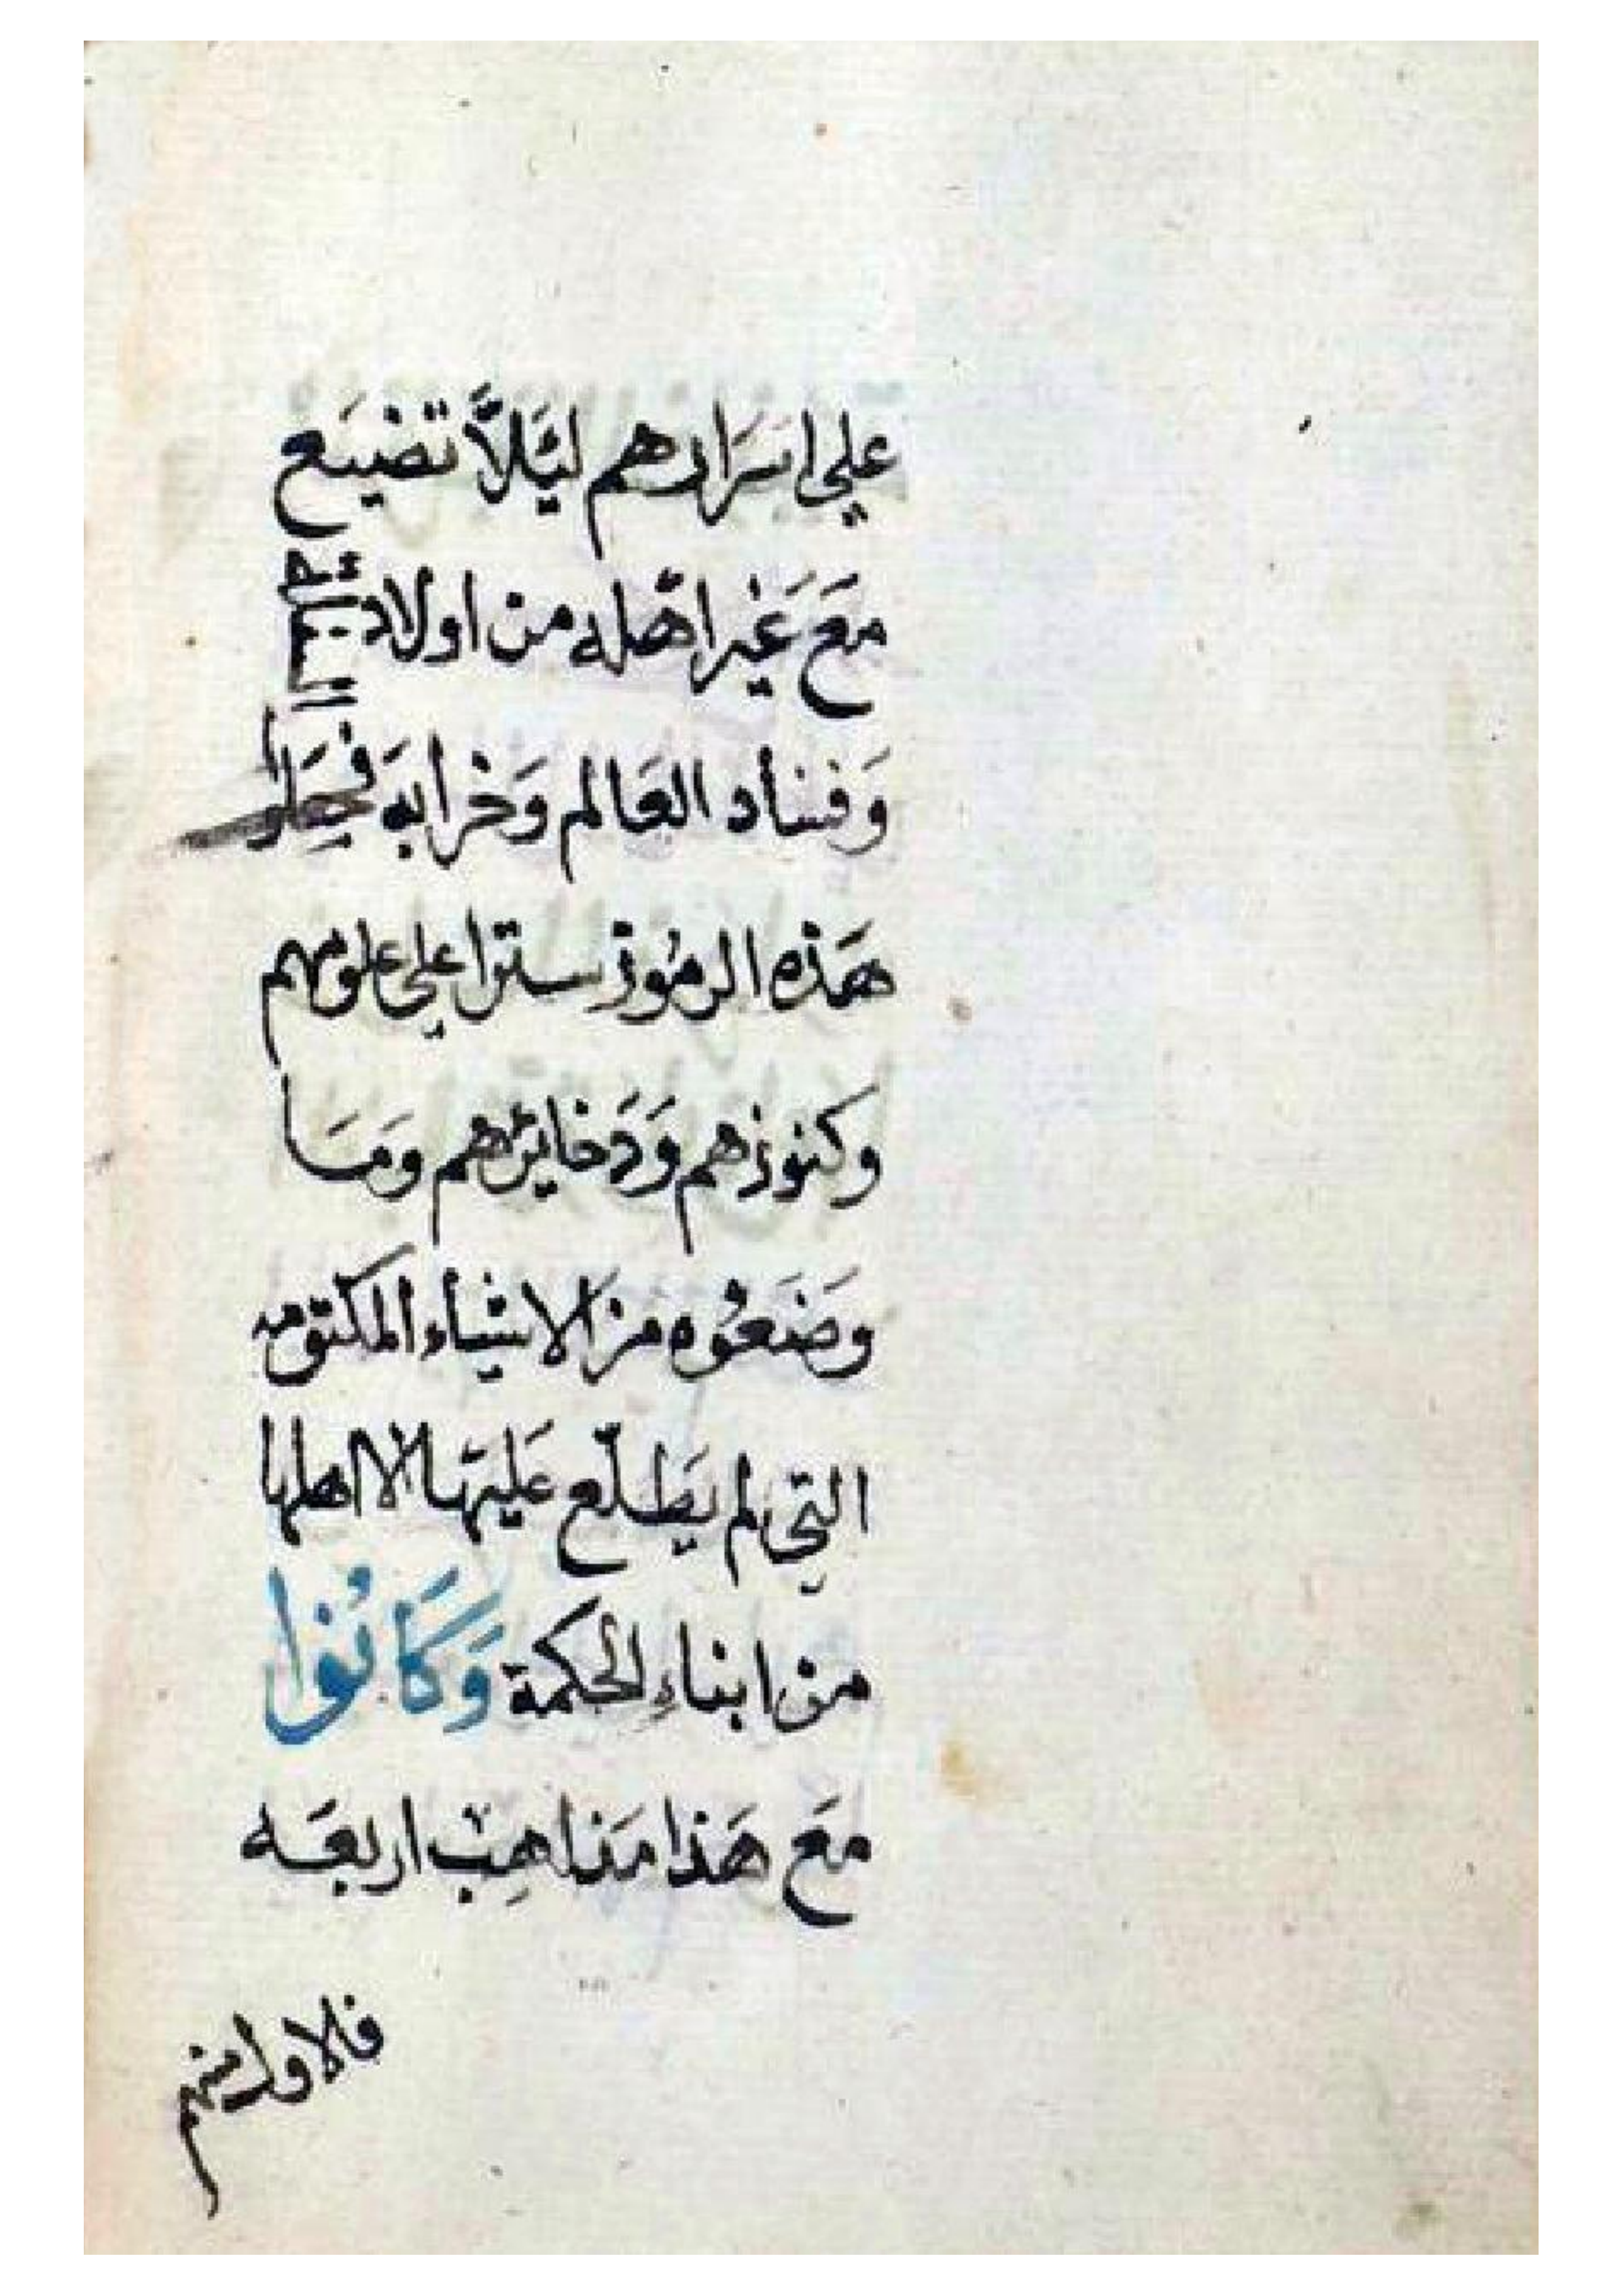 علي اسَرَارهم ليَئلاَّ تضيَع
مَعَ غَير اهّله من اولاد
وَفسَاد العَالم وَخرابهَ فجَعَلوُا
هَذه الرمُوز ستَرا علي علومهم
وكنوزهم وَدَخايرهم ومَا
وضَعَوُه مَن الاشيَاء المكتومه
التي لم يَطلّع عَليهَا الا اهلها
من ابناءِ الحكمة وَكَانُوا
مَعَ هَذا مَذاهِب اربعَه
فالاول منهم